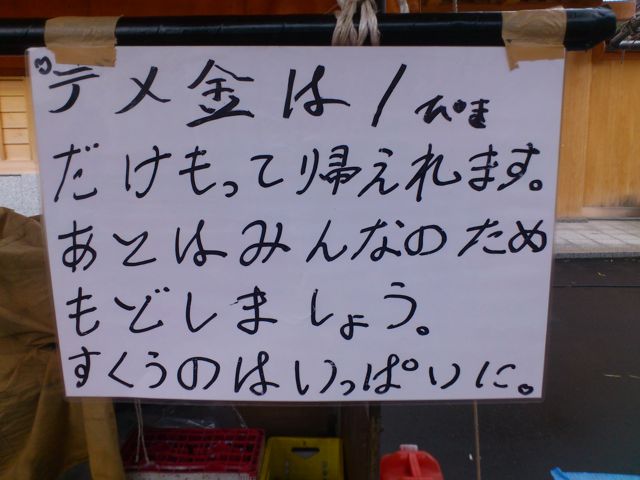 デメ金は1ぴき
だけもって帰えれます。
あとはみんなのため
もどしましょう。
すくうのはいっぱいに。